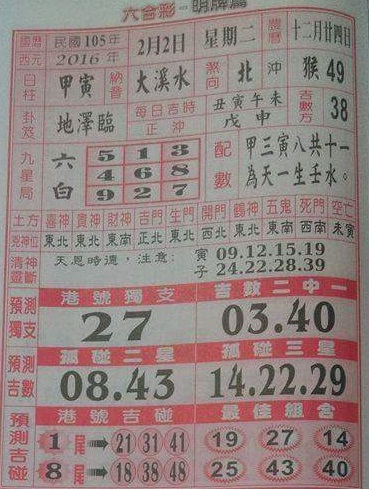 六合彩-明牌篇
國曆 民國105年 2月2日 星期二 農曆 十二月廿四日
西元 2016年
日柱 甲寅 納音 大溪水 煞向 北 沖 猴49
卦笈 地澤臨 每日吉時 正沖 丑寅午未戌申 吉數方 38
九星局 六白
5 1 3
4 6 8
9 2 7
配數 甲三寅八共十一
為天一生壬水。
土方 喜神 貴神 財神 吉門 生門 開門 鶴神 五鬼 死門 空亡
東北 東北 東南 正北 東北 西北 東北 東南 西南 未寅
天恩時德,注意: 寅 09.12.15.19
子 24.22.28.39
預測獨支 港號獨支 吉數二中一
27 03.40
預測吉數 孤碰二星 孤碰三星
08.43 14.22.29
預測吉碰 港號吉碰 最佳組合
1尾 21 31 41 19 27 14
8尾 18 38 48 25 43 40